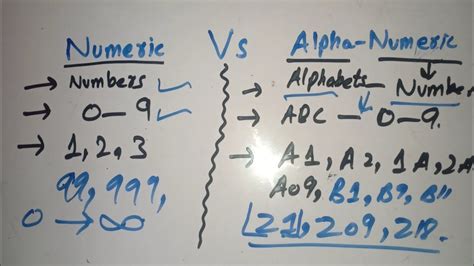 Numeric Vs Alpha-Numeric
→ Numbers
→ 0 – 9
→ 1, 2, 3
99, 999,
0 → ∞
→ Alphabets – Number
→ ABC – 0 – 9.
→ A1, A2, 1A, 2A
A09, B1, B9, B11
Z1, Z09, Z18.